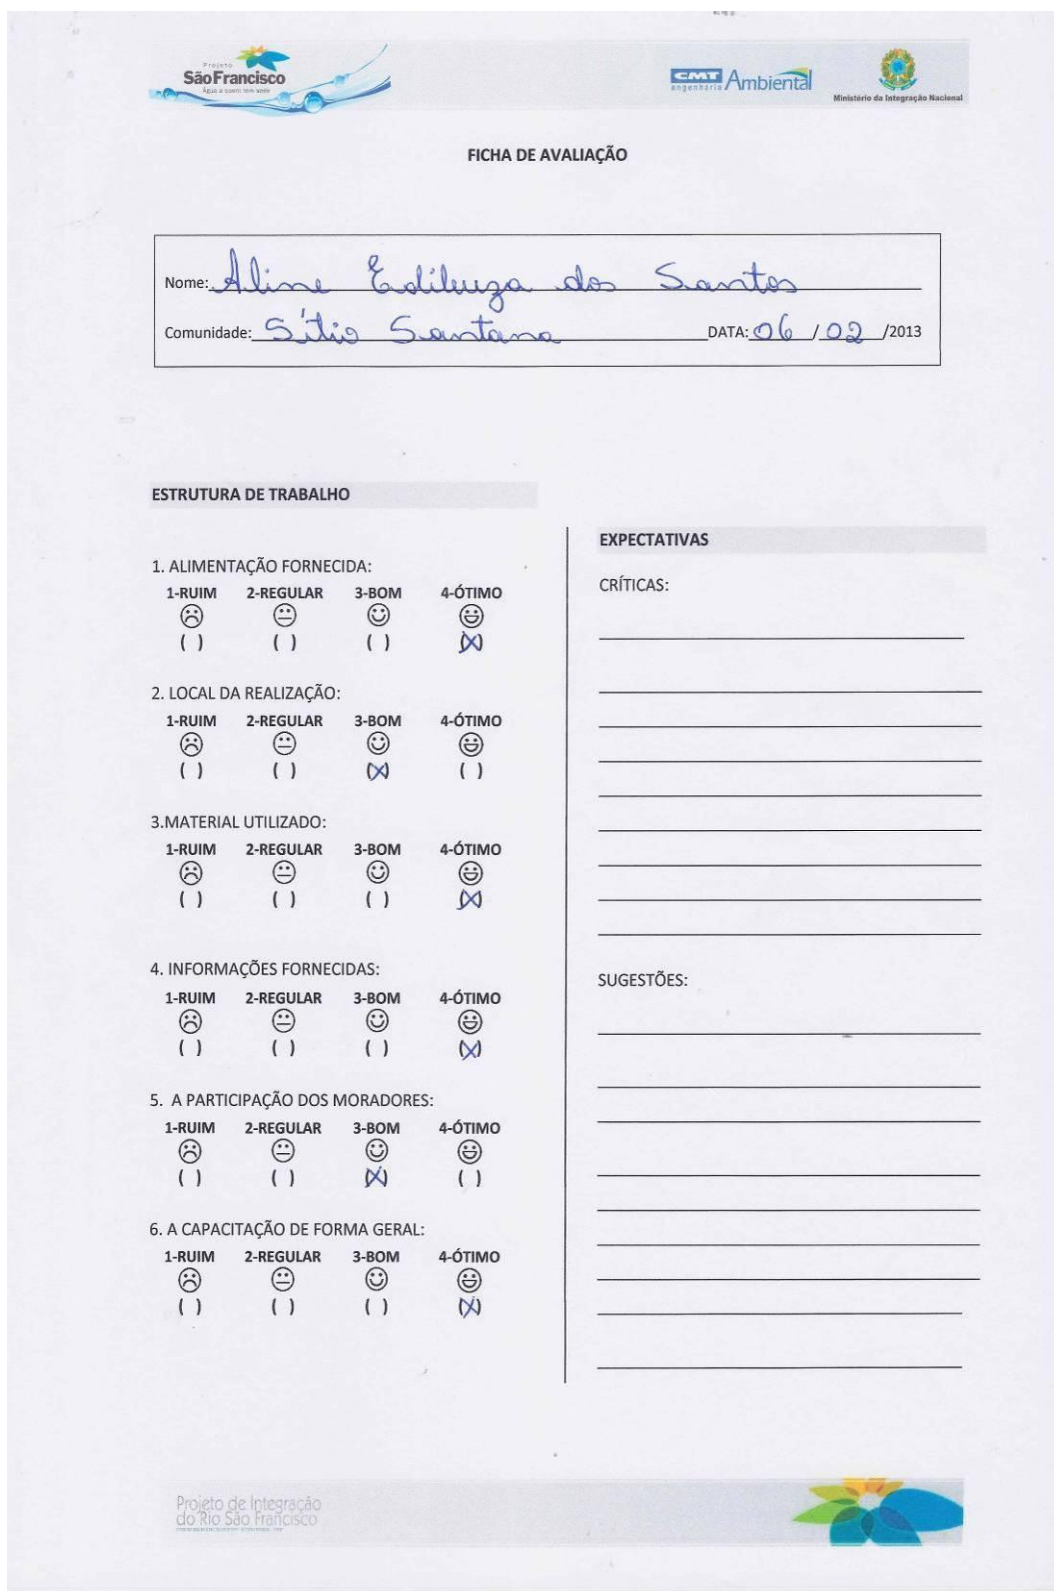 Projeto
São Francisco
Água a quem tem sede
CMT Ambiental
engenharia
Ministério da Integração Nacional
FICHA DE AVALIAÇÃO
Nome: Aline Edileuza dos Santos
Comunidade: Sítio Santana DATA: 06 / 02 /2013
ESTRUTURA DE TRABALHO
1. ALIMENTAÇÃO FORNECIDA:
1-RUIM 2-REGULAR 3-BOM 4-ÓTIMO
( ) ( ) ( ) (X)
2. LOCAL DA REALIZAÇÃO:
1-RUIM 2-REGULAR 3-BOM 4-ÓTIMO
( ) ( ) (X) ( )
3.MATERIAL UTILIZADO:
1-RUIM 2-REGULAR 3-BOM 4-ÓTIMO
( ) ( ) ( ) (X)
4. INFORMAÇÕES FORNECIDAS:
1-RUIM 2-REGULAR 3-BOM 4-ÓTIMO
( ) ( ) ( ) (X)
5. A PARTICIPAÇÃO DOS MORADORES:
1-RUIM 2-REGULAR 3-BOM 4-ÓTIMO
( ) ( ) (X) ( )
6. A CAPACITAÇÃO DE FORMA GERAL:
1-RUIM 2-REGULAR 3-BOM 4-ÓTIMO
( ) ( ) ( ) (X)
EXPECTATIVAS
CRÍTICAS:
SUGESTÕES:
Projeto de Integração
do Rio São Francisco